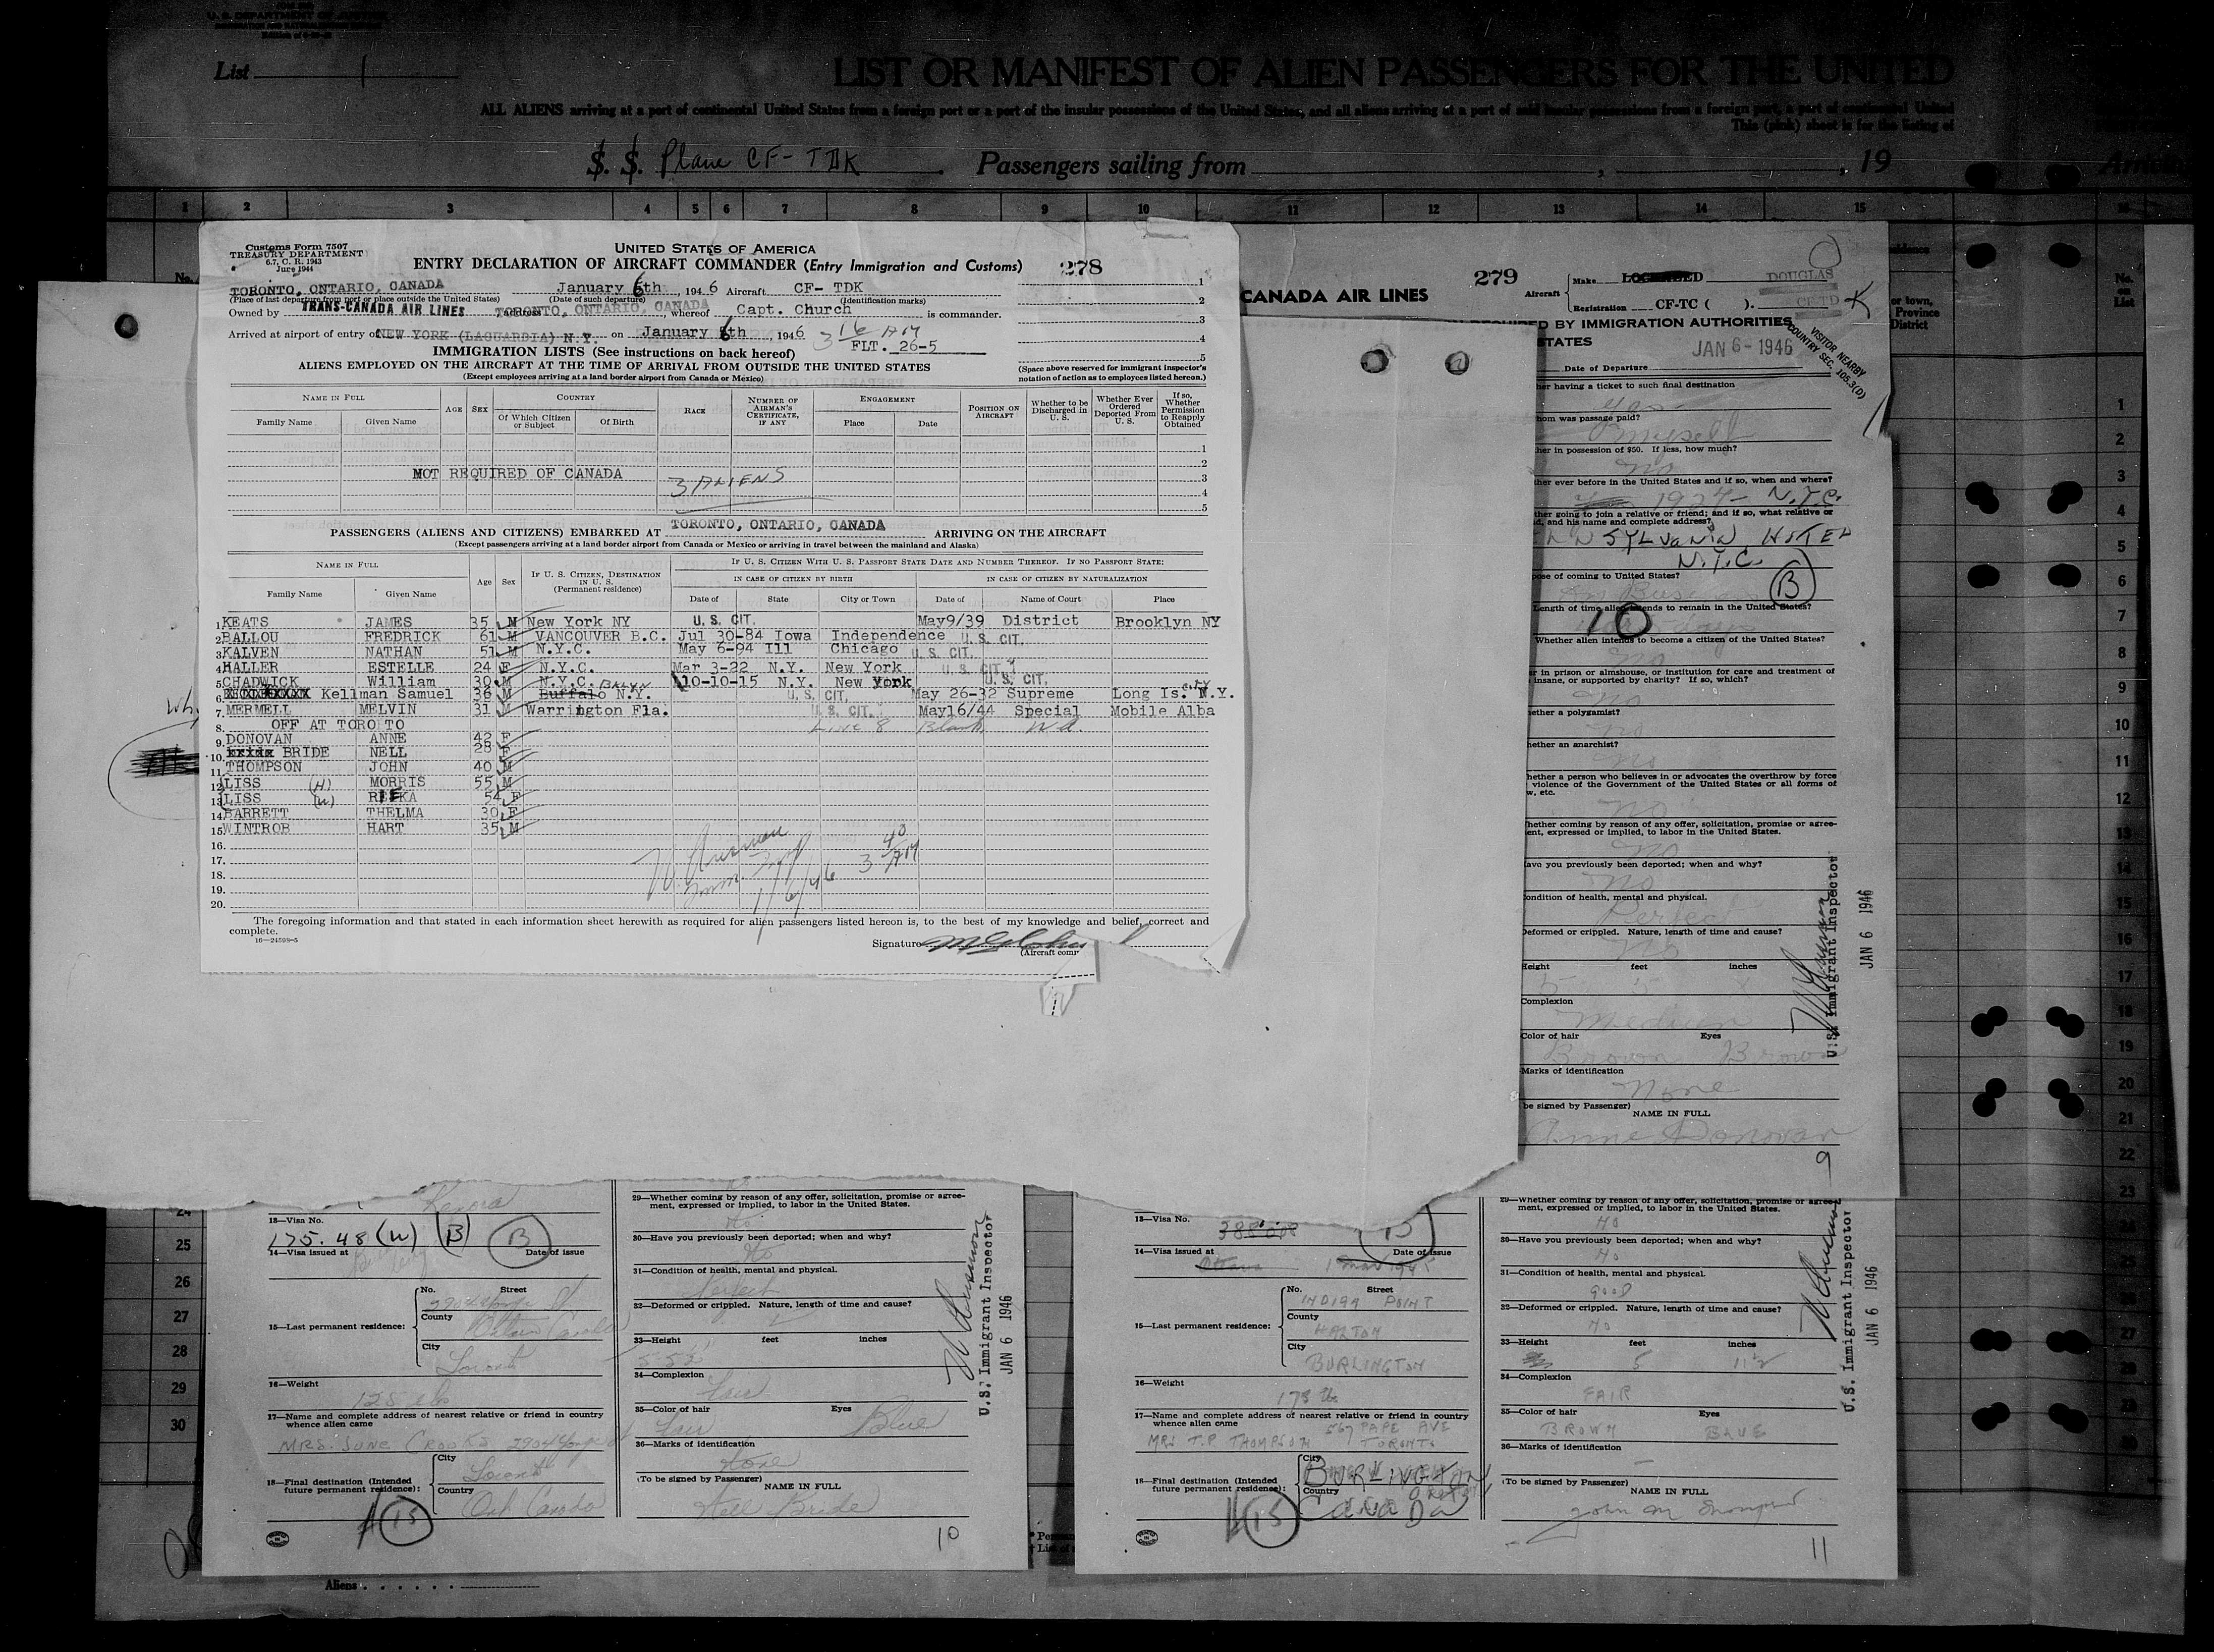 U. S. DEPARTMENT OF JUSTICE
List 1
LIST OR MANIFEST OF ALIEN PASSENGERS FOR THE UNITED
ALL ALIENS arriving at a port of continental United States from a foreign port or a port of the insular possessions of the United States, and all aliens arriving at a port of said insular possessions from a foreign port, a port of continental United
This (pink) sheet is for the listing of
S. S. Plane CF-TDK Passengers sailing from , , 19
1 2 3 4 5 6 7 8 9 10 11 12 13 14 15
Customs Form 7507
TREASURY DEPARTMENT
6.7, C. R. 1943
June 1944
UNITED STATES OF AMERICA
ENTRY DECLARATION OF AIRCRAFT COMMANDER (Entry Immigration and Customs)
278
TORONTO, ONTARIO, CANADA January 6th, 1946 Aircraft CF- TDK
(Place of last departure from port or place outside the United States) (Date of such departure) (Identification marks)
Owned by TRANS-CANADA AIR LINES TORONTO, ONTARIO, CANADA, whereof Capt. Church is commander.
Arrived at airport of entry of NEW YORK (LAGUARDIA) N.Y. on January 6th, 1946 3 16 AM
FLT. 26-5
IMMIGRATION LISTS (See instructions on back hereof)
ALIENS EMPLOYED ON THE AIRCRAFT AT THE TIME OF ARRIVAL FROM OUTSIDE THE UNITED STATES
(Except employees arriving at a land border airport from Canada or Mexico)
1
2
3
4
5
(Space above reserved for immigrant inspector's notation of action as to employees listed hereon.)
NAME IN FULL AGE SEX COUNTRY RACE NUMBER OF AIRMAN'S CERTIFICATE, IF ANY ENGAGEMENT POSITION ON AIRCRAFT Whether to be Discharged in U. S. Whether Ever Ordered Deported From U. S. If so, Whether Permission to Reapply Obtained
Family Name Given Name Of Which Citizen or Subject Of Birth Place Date
1
2
3
4
5
NOT REQUIRED OF CANADA
3 ALIENS
PASSENGERS (ALIENS AND CITIZENS) EMBARKED AT TORONTO, ONTARIO, CANADA ARRIVING ON THE AIRCRAFT
(Except passengers arriving at a land border airport from Canada or Mexico or arriving in travel between the mainland and Alaska)
NAME IN FULL Age Sex IF U. S. CITIZEN, DESTINATION IN U. S. (Permanent residence) IF U. S. CITIZEN WITH U. S. PASSPORT STATE DATE AND NUMBER THEREOF. IF NO PASSPORT STATE:
IN CASE OF CITIZEN BY BIRTH IN CASE OF CITIZEN BY NATURALIZATION
Family Name Given Name Date of State City or Town Date of Name of Court Place
1. KEATS JAMES 35 M New York NY U. S. CIT. May9/39 District Brooklyn NY
2. BALLOU FREDRICK 61 M VANCOUVER B.C. Jul 30-84 Iowa Independence U. S. CIT.
3. KALVEN NATHAN 51 M N.Y.C. May 6-94 Ill Chicago U. S. CIT.
4. HALLER ESTELLE 24 F N.Y.C. Mar 3-22 N.Y. New York U. S. CIT.
5. CHADWICK William 30 M N.Y.C. BKLYN 10-10-15 N.Y. New York U. S. CIT.
6. Kellman Samuel 36 M Buffalo N.Y. U. S. CIT. May 26-32 Supreme Long Is. City N.Y.
7. MERMELL MELVIN 31 M Warrington Fla. U. S. CIT. May16/44 Special Mobile Alba
8. OFF AT TORONTO Line 8 Blank
9. DONOVAN ANNE 42 F
10. BRIDE NELL 28 F
11. THOMPSON JOHN 40 M
12. LISS (H) MORRIS 55 M
13. LISS (W) 54 F
14. BARRETT THELMA 30 F
15. WINTROB HART 35 M
16.
17.
18.
19.
20.
1/6/46 3 40 AM
The foregoing information and that stated in each information sheet herewith as required for alien passengers listed hereon is, to the best of my knowledge and belief, correct and
complete.
16—24598-5
Signature
(Aircraft comm
CANADA AIR LINES
279
Aircraft Make LOCKHEED DOUGLAS
Registration CF-TC ( ). CF-TD K
REQUIRED BY IMMIGRATION AUTHORITIES
STATES
JAN 6 - 1946
VISITOR NEARBY
COUNTRY SEC. 105.3(D)
Date of Departure
her having a ticket to such final destination
Yes
hom was passage paid?
Myself
her in possession of $50. If less, how much?
No
her ever before in the United States and if so, when and where?
1927 - N.Y.C.
her going to join a relative or friend; and if so, what relative or
d, and his name and complete address?
SYLVANIA HOTEL
N.Y.C.
ose of coming to United States?
B
Length of time alien intends to remain in the United States?
10 days
Whether alien intends to become a citizen of the United States?
No
er in prison or almshouse, or institution for care and treatment of
insane, or supported by charity? If so, which?
No
ether a polygamist?
No
hether an anarchist?
No
hether a person who believes in or advocates the overthrow by force
violence of the Government of the United States or all forms of
w, etc.
No
hether coming by reason of any offer, solicitation, promise or agree-
ent, expressed or implied, to labor in the United States.
No
ave you previously been deported; when and why?
No
ondition of health, mental and physical.
Perfect
Deformed or crippled. Nature, length of time and cause?
No
Height feet inches
5 5
Complexion
Medium
Color of hair Eyes
Brown Brown
Marks of identification
None
be signed by Passenger)
NAME IN FULL
Anne Donovan
9
U.S. Immigrant Inspector
JAN 6 1946
Kenora
13—Visa No.
175.48 (W) (B) B
14—Visa issued at Date of issue
No. Street
15—Last permanent residence: County
City
Toronto
16—Weight
125 lbs
17—Name and complete address of nearest relative or friend in country
whence alien came
MRS. JUNE CROOKS 2904 Yonge
18—Final destination (Intended
future permanent residence): City Toronto
Country Ont Canada
15
29—Whether coming by reason of any offer, solicitation, promise or agree-
ment, expressed or implied, to labor in the United States.
No
30—Have you previously been deported; when and why?
No
31—Condition of health, mental and physical.
Perfect
32—Deformed or crippled. Nature, length of time and cause?
33—Height feet inches
34—Complexion
Fair
35—Color of hair Eyes
Fair Blue
36—Marks of identification
None
(To be signed by Passenger)
NAME IN FULL
Nell Bride
10
U.S. Immigrant Inspector
JAN 6 1946
13—Visa No.
388008
14—Visa issued at Date of issue
Ottawa
No. Street
INDIAN POINT
15—Last permanent residence: County
HALTON
City
BURLINGTON
16—Weight
178 lbs
17—Name and complete address of nearest relative or friend in country
whence alien came 567 PAPE AVE
MRS T.P. THOMPSON TORONTO
18—Final destination (Intended
future permanent residence): City BURLINGTON,
Country CANADA
15
29—Whether coming by reason of any offer, solicitation, promise or agree-
ment, expressed or implied, to labor in the United States.
NO
30—Have you previously been deported; when and why?
NO
31—Condition of health, mental and physical.
GOOD
32—Deformed or crippled. Nature, length of time and cause?
NO
33—Height feet inches
5 11½
34—Complexion
FAIR
35—Color of hair Eyes
BROWN BLUE
36—Marks of identification
—
(To be signed by Passenger)
NAME IN FULL
John M Thompson
11
U.S. Immigrant Inspector
JAN 6 1946
24
25
26
27
28
29
30
Aliens . . . . . .
No. on List
1
2
3
4
5
6
7
8
9
10
11
12
13
14
15
16
17
18
19
20
21
22
23
27
or town, Province District